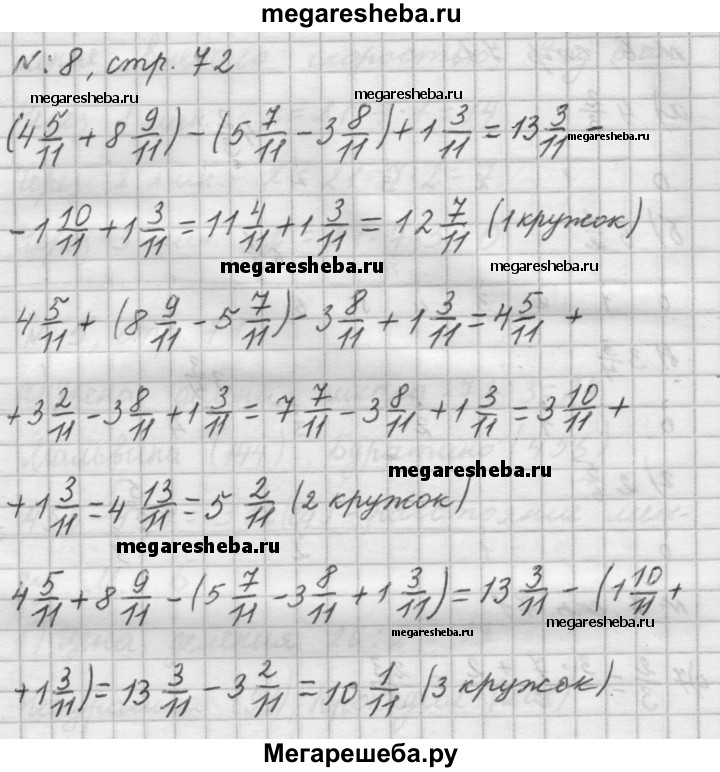 megaresheba.ru
№8, стр. 72
megaresheba.ru megaresheba.ru
(4 5/11 + 8 9/11) - (5 7/11 - 3 8/11) + 1 3/11 = 13 3/11 -
megaresheba.ru
- 1 10/11 + 1 3/11 = 11 4/11 + 1 3/11 = 12 7/11 (1 кружок)
megaresheba.ru megaresheba.ru
4 5/11 + (8 9/11 - 5 7/11) - 3 8/11 + 1 3/11 = 4 5/11 +
+ 3 2/11 - 3 8/11 + 1 3/11 = 7 7/11 - 3 8/11 + 1 3/11 = 3 10/11 +
megaresheba.ru
+ 1 3/11 = 4 13/11 = 5 2/11 (2 кружок)
megaresheba.ru
4 5/11 + 8 9/11 - (5 7/11 - 3 8/11 + 1 3/11) = 13 3/11 - (1 10/11 +
megaresheba.ru megaresheba.ru
+ 1 3/11) = 13 3/11 - 3 2/11 = 10 1/11 (3 кружок)
Мегарешеба.ру